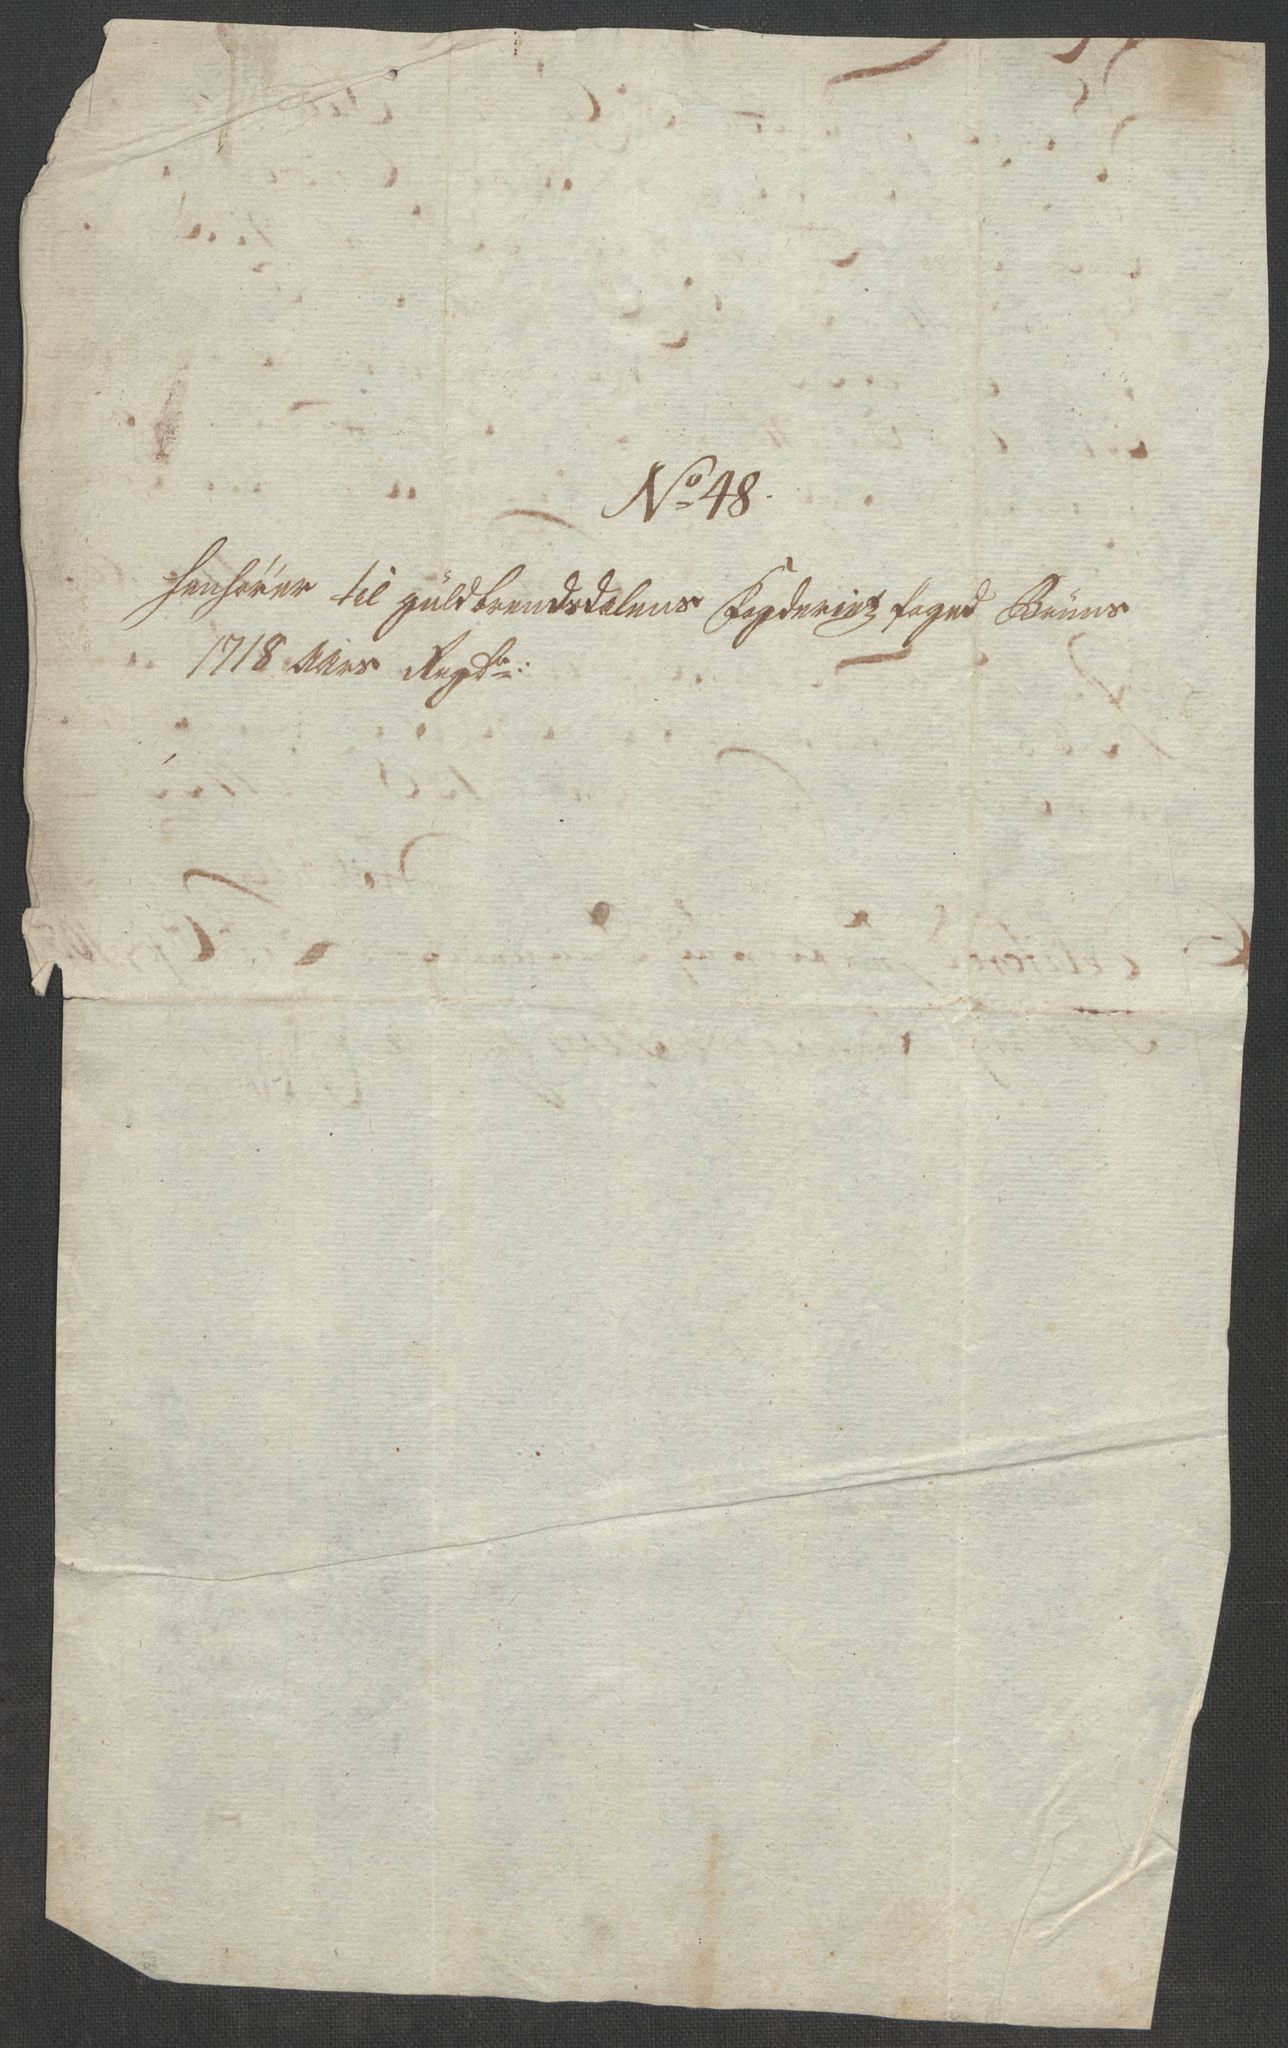 No 48.
henhörer til güldbrandsdalens Fogderies foged Brüns
1718 Aars Regsk: